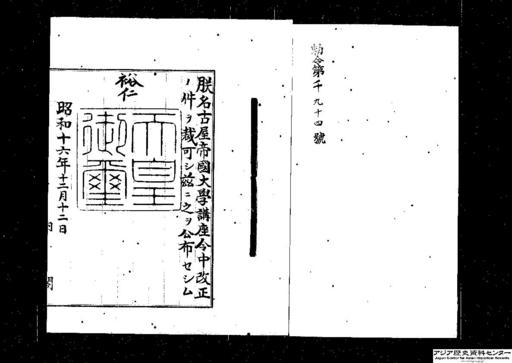 勅令第千九十四號
朕名古屋帝國大學講座令中改正
ノ件ヲ裁可シ茲ニ之ヲ公布セシム
裕仁
天皇
御璽
昭和十六年十二月十二日
内閣
アジア歴史資料センター
Japan Center for Asian Historical Records